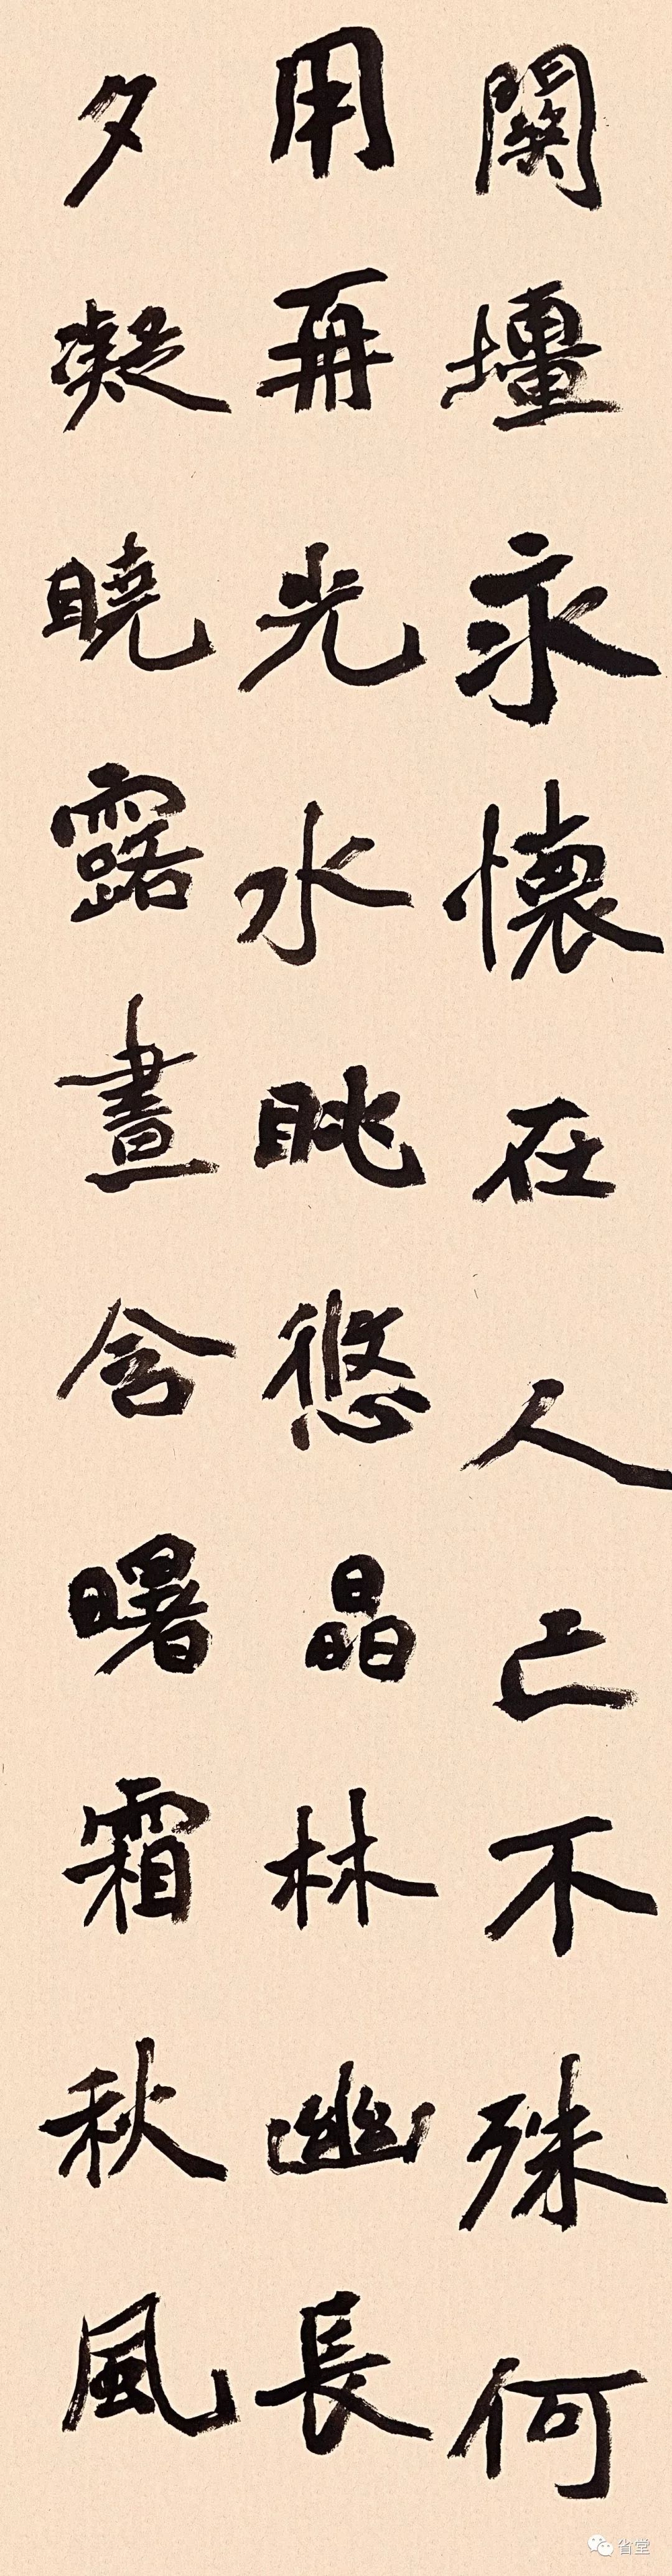 闕壇永懷在人亡不殊何
用再光水眺悠晶林幽長
夕凝曉露晝含曙霜秋風
省堂